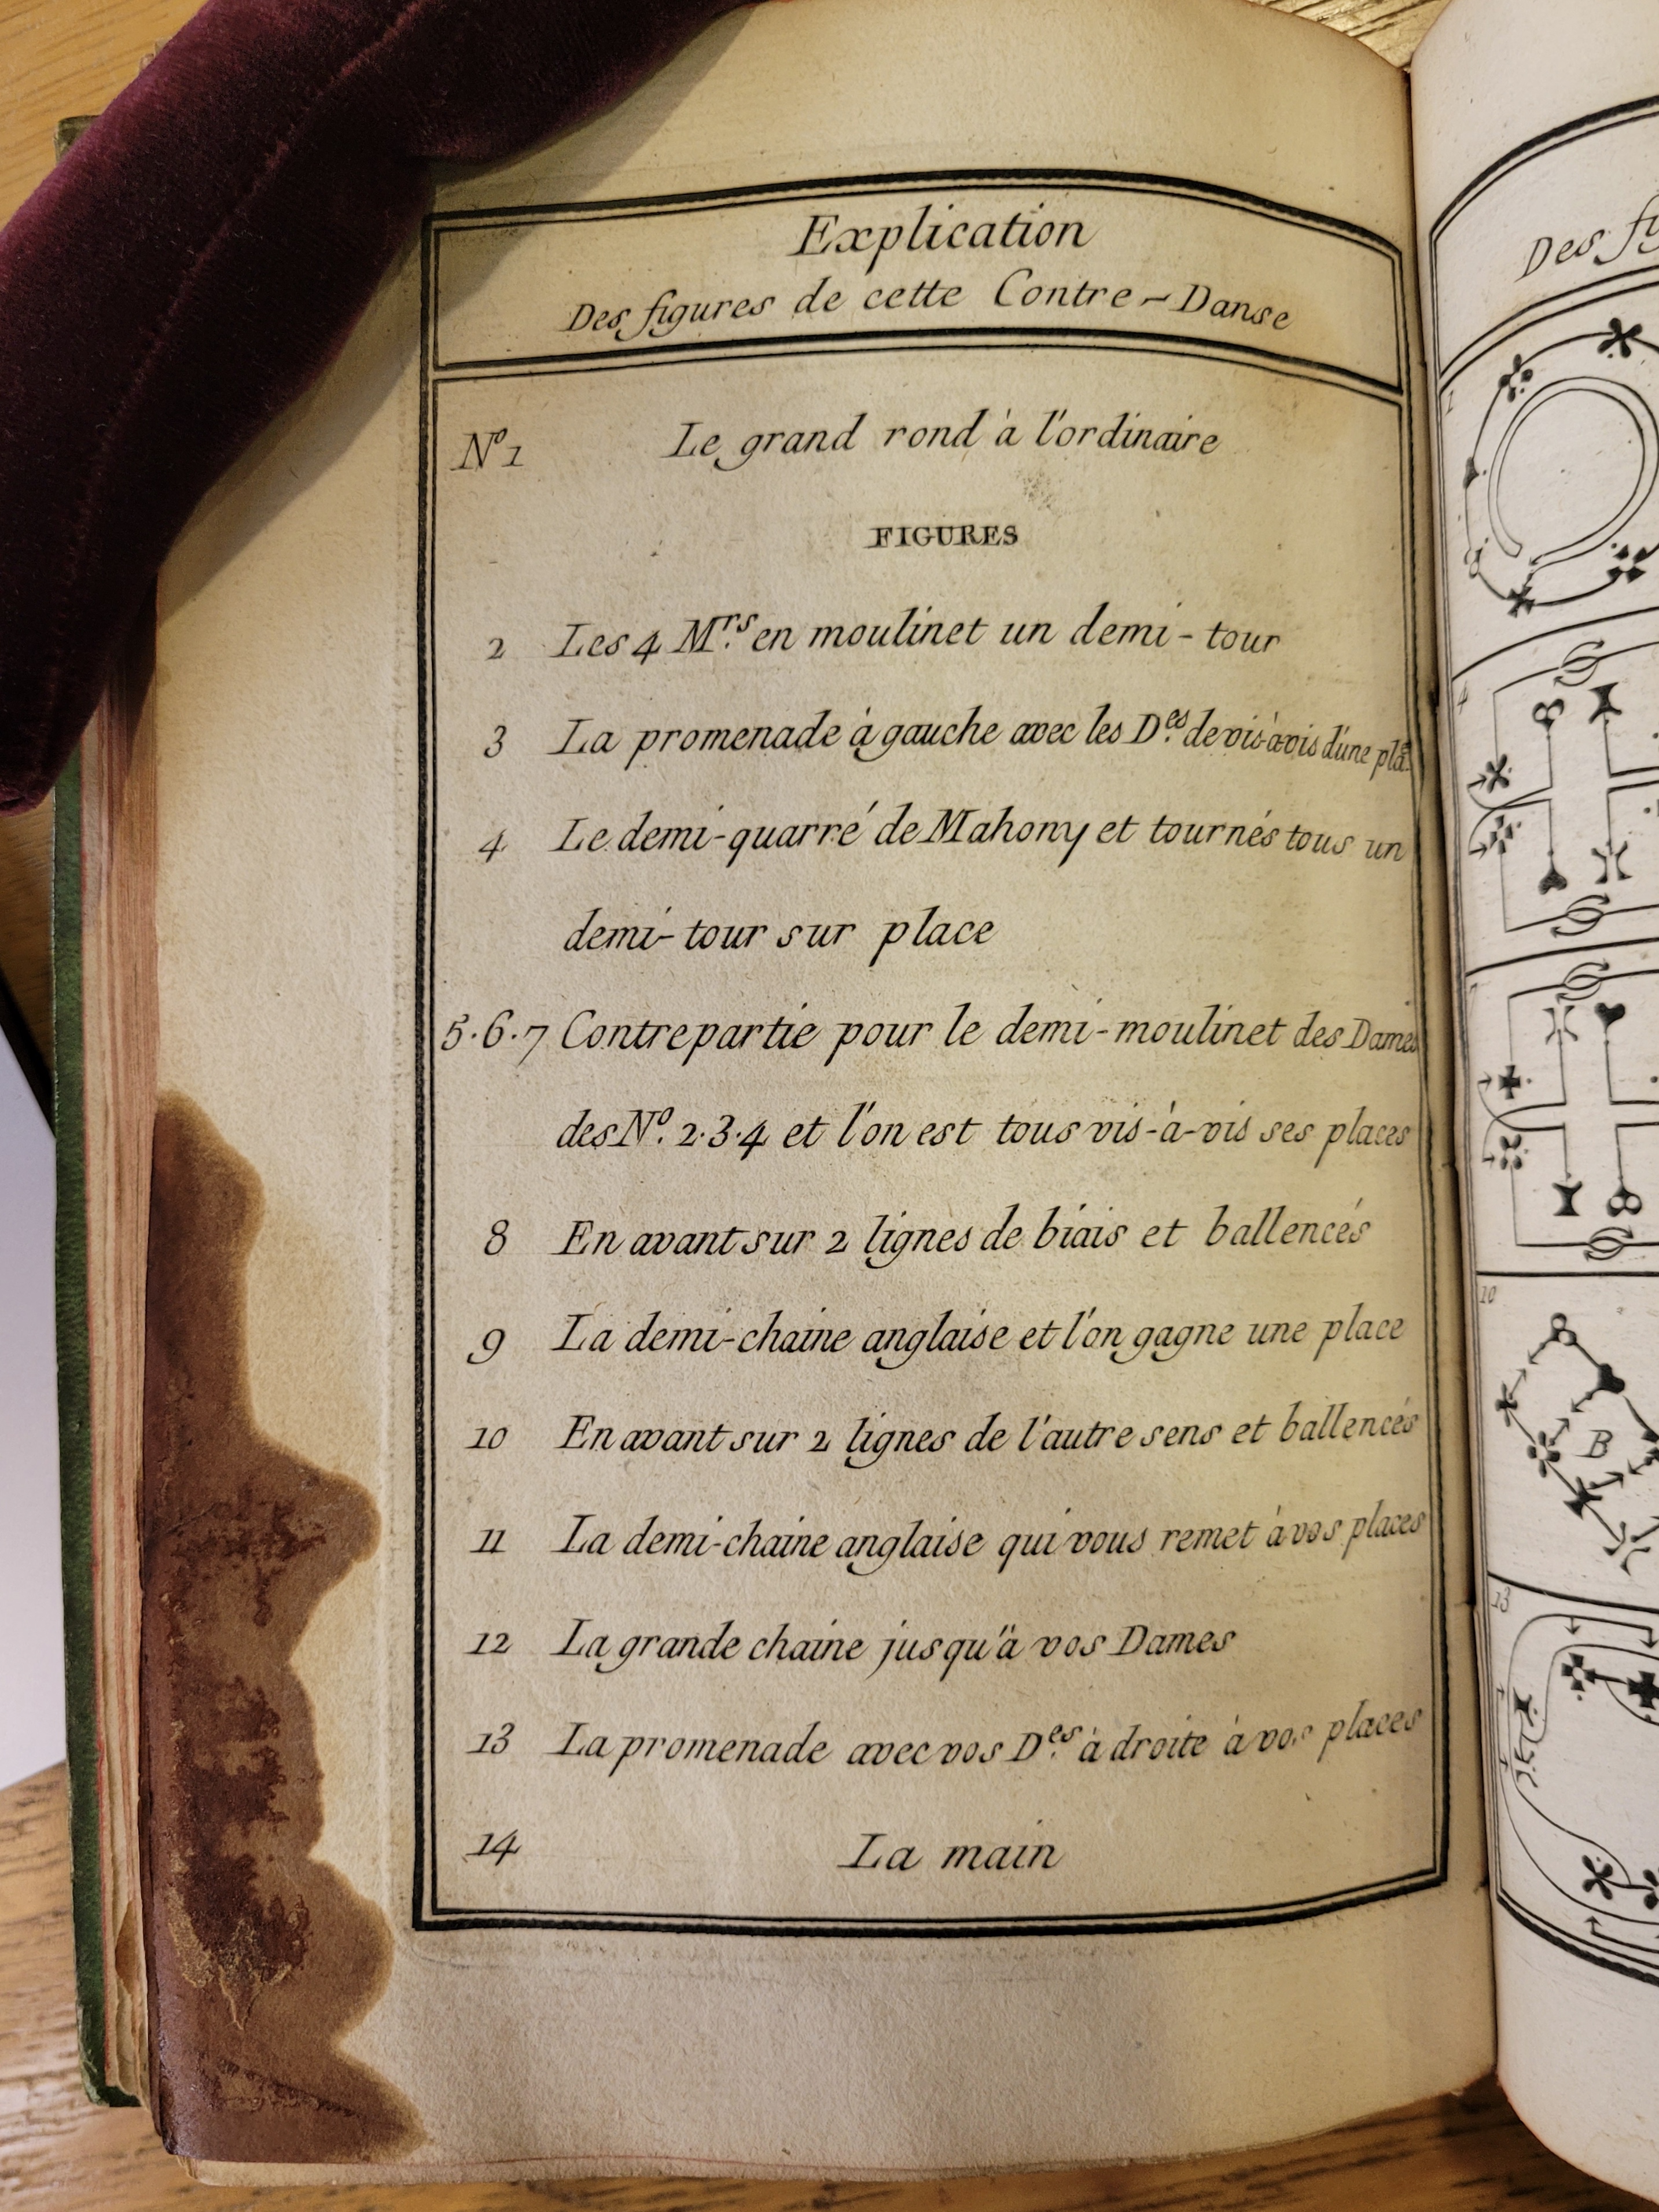 Explication
Des figures de cette Contre-Danse
N.º 1 Le grand rond à l'ordinaire
FIGURES
2 Les 4 M.rs en moulinet un demi-tour
3 La promenade à gauche avec les D.es de vis-à-vis d'une pla.
4 Le demi-quarré de Mahony et tournés tous un
demi-tour sur place
5.6.7 Contrepartie pour le demi-moulinet des Dames
des N.º 2.3.4 et l'on est tous vis-à-vis ses places
8 En avant sur 2 lignes de biais et ballencés
9 La demi-chaine anglaise et l'on gagne une place
10 En avant sur 2 lignes de l'autre sens et ballencés
11 La demi-chaine anglaise qui vous remet à vos places
12 La grande chaine jusqu'à vos Dames
13 La promenade avec vos D.es à droite à vos places
14 La main
Des
10
B
13